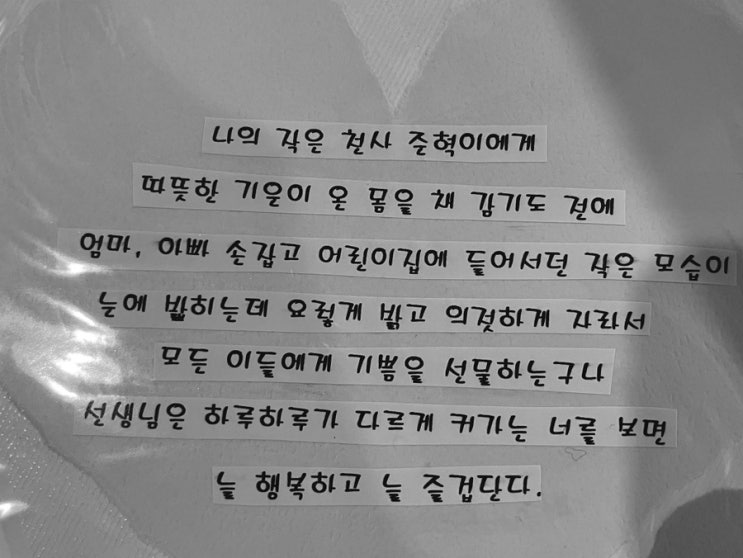 나의 작은 천사 준혁이에게
따뜻한 기운이 온 몸을 채 감기도 전에
엄마, 아빠 손잡고 어린이집에 들어서던 작은 모습이
눈에 밟히는데 요렇게 밝고 의젓하게 자라서
모든 이들에게 기쁨을 선물하는구나
선생님은 하루하루가 다르게 커가는 너를 보면
늘 행복하고 늘 즐겁단다.